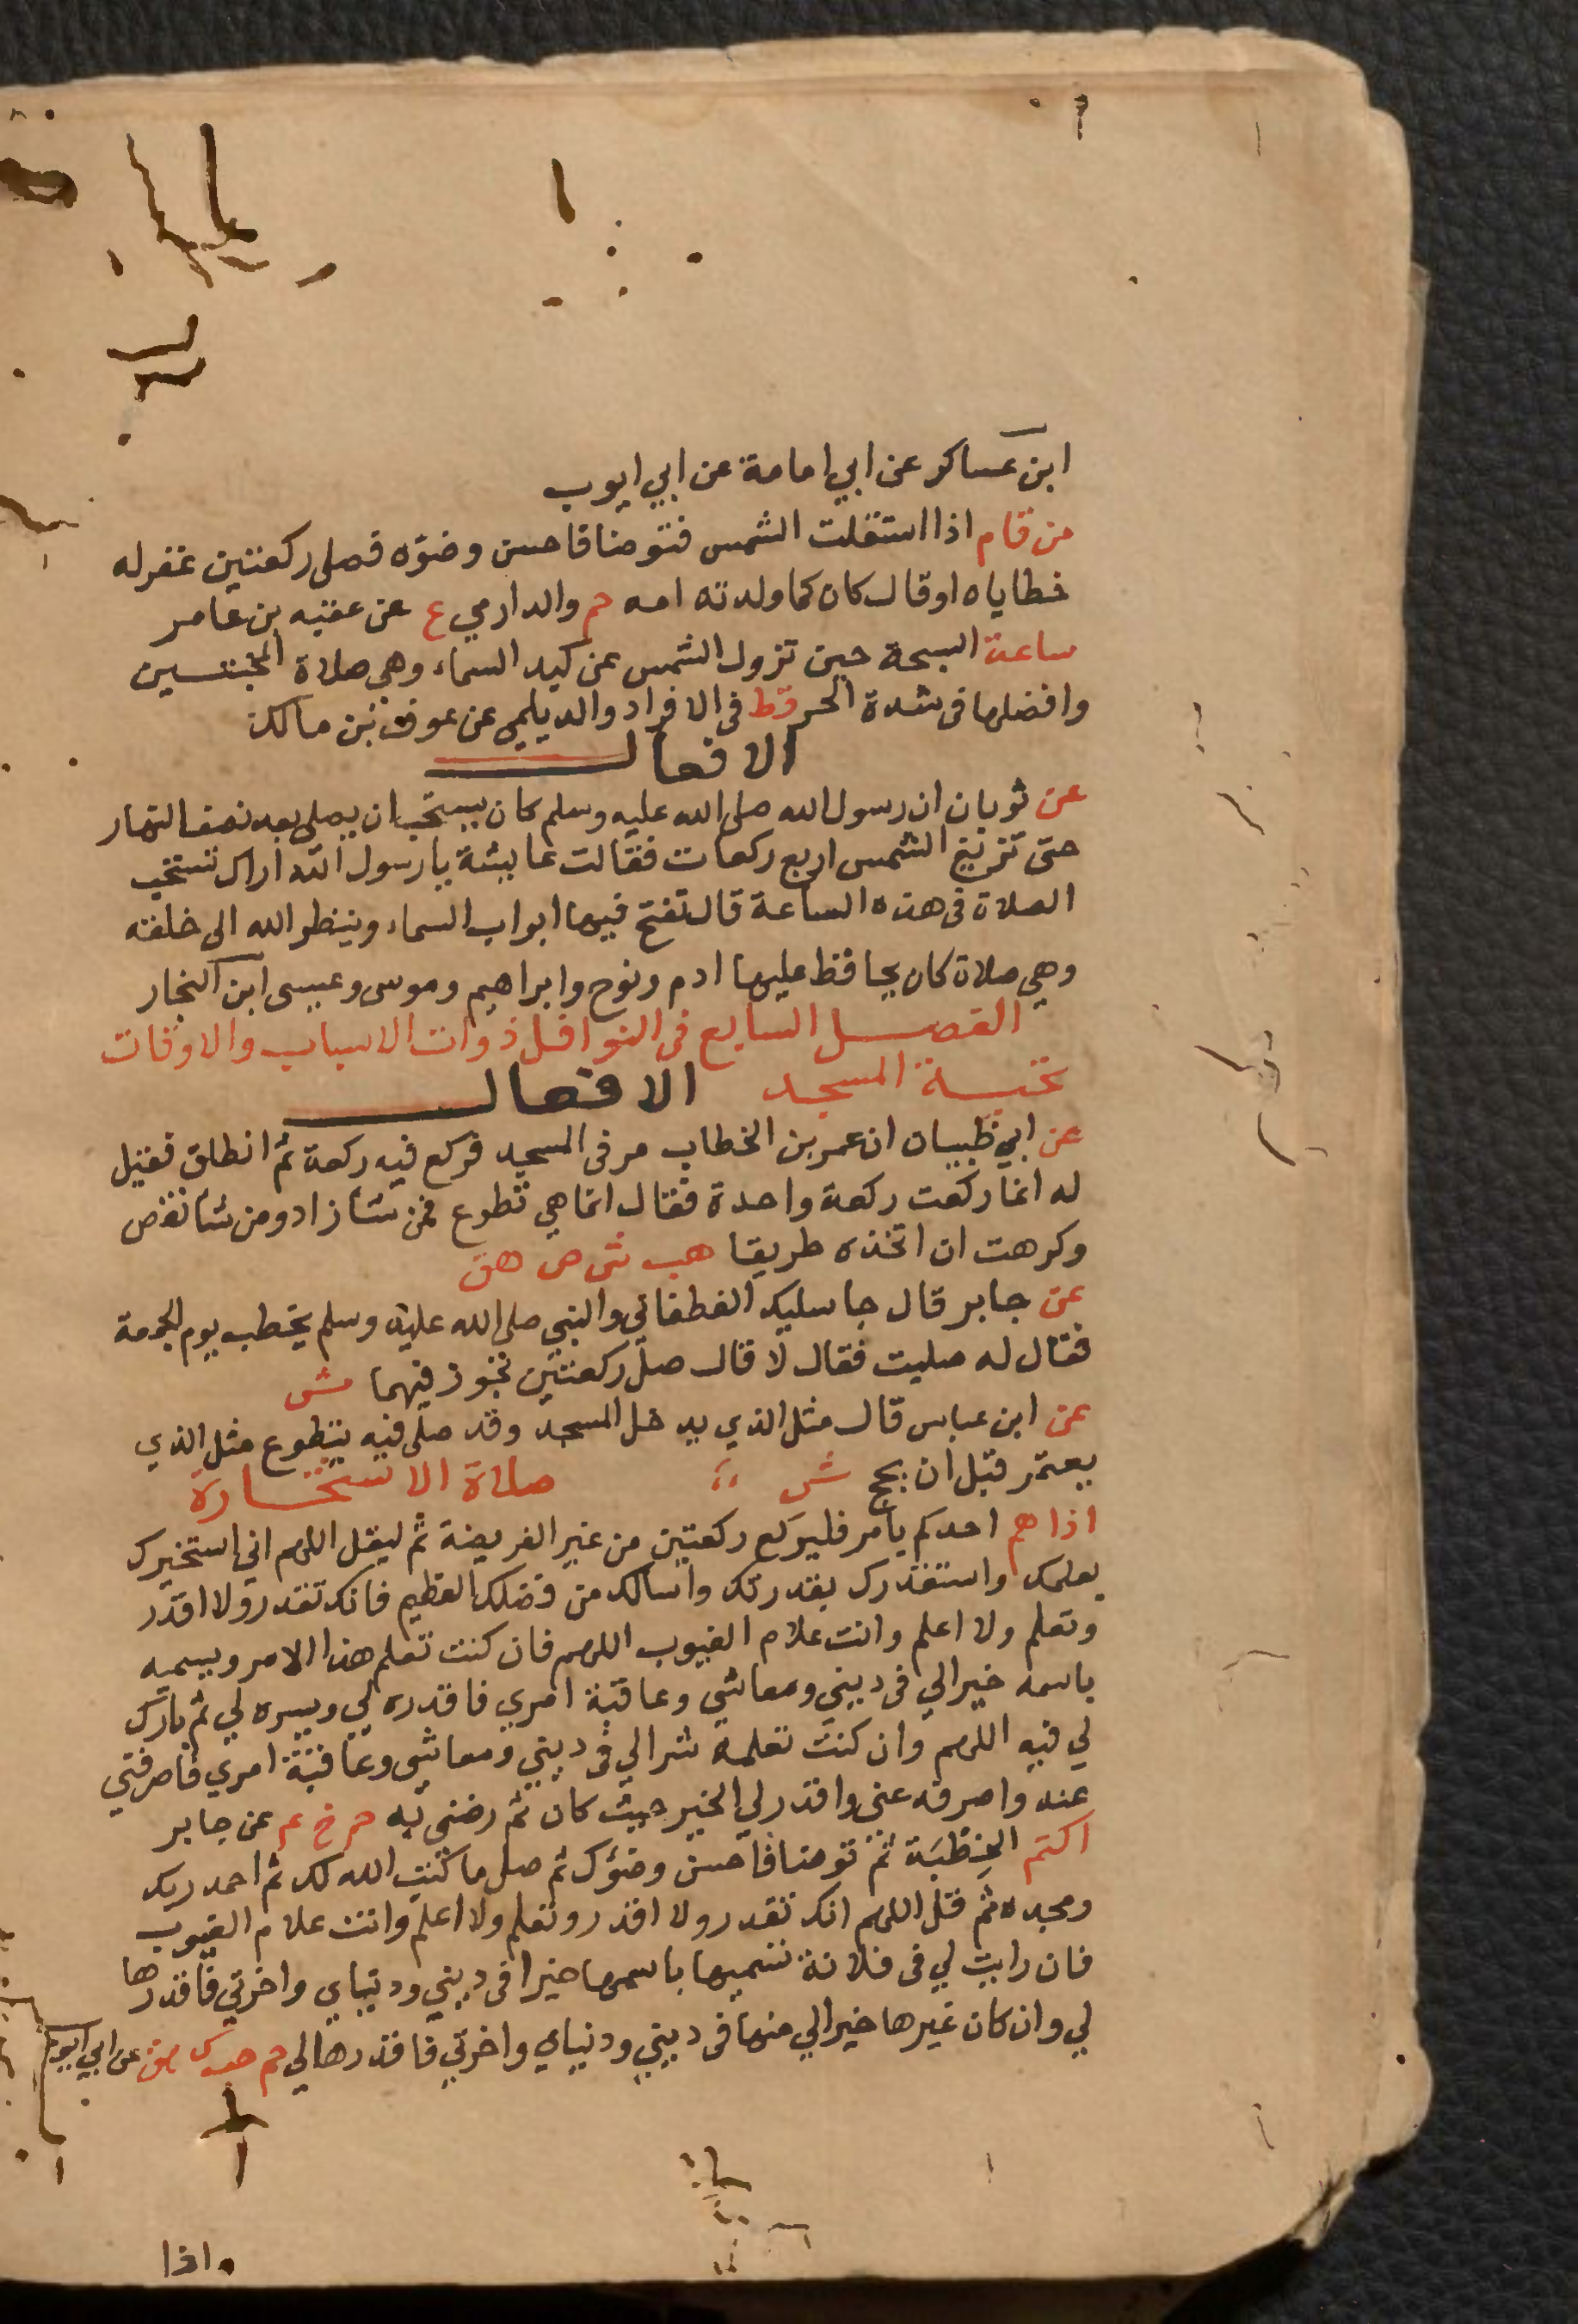 ابن عساكر عن ابي امامة عن ابي ايوب
من قام اذا استقلت الشمس فتوضا فاحسن وضوه فصلى ركعتين غفر له
خطاياه اوقال كان كما ولدته امه حم والدارمي ع عن عقبه بن عامر
ساعة السبحة حين تزول الشمس عن كبد السماء وهي صلاة المخبتسين
وافضلها فى شدة الحر قط فى الافراد والديلمي عن عوف بن مالك
الافعال
عن ثوبان ان رسول الله صلى الله عليه وسلم كان يستحب ان يصلى بعد نصف النهار
حتى تزيغ الشمس اربع ركعات فقالت عايشة يا رسول الله اراك تستحب
الصلاة فى هذه الساعة قال تفتح فيها ابواب السماء وينظر الله الى خلقه
وهي صلاة كان يحافظ عليها ادم ونوح وابراهيم وموسى وعيسى ابن النجار
الفصل السابع فى النوافل ذوات الاسباب والاوقات
تحية المسجد الافعال
عن ابي ظبيان ان عمر بن الخطاب مر فى المسجد فركع فيه ركعة ثم انطلق فقيل
له انما ركعت ركعة واحدة فقال انما هي تطوع فمن شا زاد ومن شا نقص
وكرهت ان اتخذه طريقا هب ش ص هق
عن جابر قال جا سليك الغطفاني والنبي صلى الله عليه وسلم يخطب يوم الجمعة
فقال له صليت فقال لا قال صل ركعتين تجوز فيهما ش
عن ابن عباس قال مثل الذي يدخل المسجد وقد صلى فيه يتطوع مثل الذي
يعتمر قبل ان يحج ش صلاة الاستخارة
اذا هم احدكم بامر فليركع ركعتين من غير الفريضة ثم ليقل اللهم اني استخيرك
بعلمك واستقدرك بقدرتك واسالك من فضلك العظيم فانك تقدر ولا اقدر
وتعلم ولا اعلم وانت علام الغيوب اللهم فان كنت تعلم هذا الامر ويسميه
باسمه خيرا لي فى ديني ومعاشي وعاقبة امري فاقدره لي ويسره لي ثم بارك
لي فيه اللهم وان كنت تعلمه شرا لي فى ديني ومعاشى وعاقبة امري فاصرفني
عنه واصرفه عني واقدر لي الخير حيث كان ثم رضنى به حم خ عم عن جابر
اكتم الخِطْبَة ثم توضا فاحسن وضوءك ثم صل ما كتب الله لك ثم احمد ربك
ومجده ثم قل اللهم انك تقدر ولا اقدر وتعلم ولا اعلم وانت علام الغيوب
فان رايت لي فى فلانة تسميها باسمها خيرا فى ديني ودنياي واخرتي فاقدرها
لي وان كان غيرها خيرا لي منها فى ديني ودنياي واخرتي فاقدرها لي حم حب ك هق عن ابي ايوب
واذا